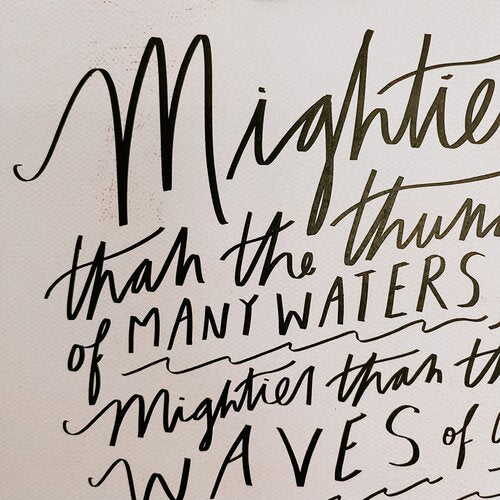 Mightie
than the thun
of MANY WATERS
Mightier than th
WAVES of